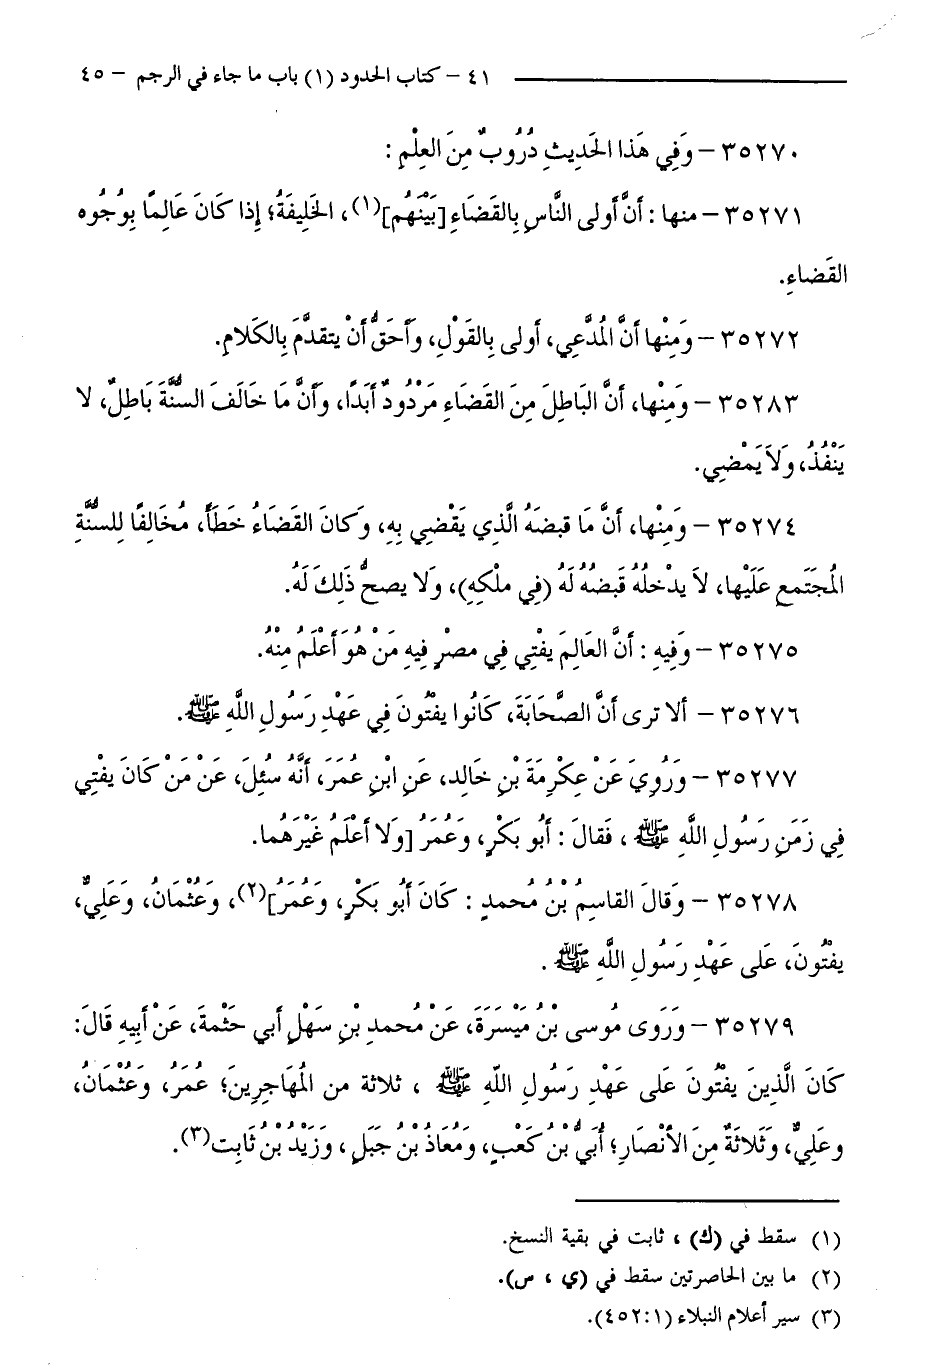 ٤١ – كتاب الحدود (١) باب ما جاء في الرجم – ٤٥
٣٥٢٧٠ – وَفِي هَذا الحَدِيثِ دُرُوبٌ مِنَ العِلْمِ :
٣٥٢٧١ – منها : أَنَّ أولى النَّاسِ بِالقَضَاءِ [بَيْنَهُم](١)، الخَلِيفَةُ؛ إِذَا كَانَ عَالِمًا بِوُجُوه
القَضاءِ.
٣٥٢٧٢ – وَمِنْها أَنَّ المُدَّعِي، أولى بِالقَوْلِ، وَأَحَقُّ أَنْ يتقدَّمَ بِالكَلامِ.
٣٥٢٨٣ – وَمِنْها، أَنَّ البَاطِلَ مِنَ القَضَاءِ مَرْدُودٌ أَبَدًا، وَأَنَّ مَا خَالَفَ السُنَّةَ بَاطِلٌ، لا
يَنْفُذُ، وَلاَ يَمْضِي.
٣٥٢٧٤ – وَمِنْها، أَنَّ مَا قبضَهُ الَّذِي يَقْضِي بِهِ، وَكانَ القَضَاءُ خَطَأً، مُخَالِفًا لِلسُنَّةِ
المُجتَمعِ عَلَيْها، لاَ يدْخلُهُ قَبضُهُ لَهُ (فِي ملْكِهِ)، وَلا يصحُّ ذَلِكَ لَهُ.
٣٥٢٧٥ – وَفِيهِ : أَنَّ العَالِمَ يفْتِي فِي مصْرٍ فِيهِ مَنْ هُوَ أَعْلَمُ مِنْهُ.
٣٥٢٧٦ – ألا ترى أَنَّ الصَّحَابَةَ، كَانُوا يفْتُونَ فِي عَهْدِ رَسُولِ اللَّهِ ﷺ.
٣٥٢٧٧ – وَرُوِيَ عَنْ عِكْرِمَةَ بْنِ خَالِد، عَنِ ابْنِ عُمَرَ، أَنَّهُ سُئِلَ، عَنْ مَنْ كَانَ يفْتِي
فِي زَمَنِ رَسُولِ اللَّهِ ﷺ ، فَقالَ : أَبُو بَكْرٍ، وَعُمَرُ [وَلا أَعْلَمُ غَيْرَهُما.
٣٥٢٧٨ – وَقالَ القاسِمُ بْنُ مُحمدٍ : كَانَ أَبُو بَكْرٍ، وَعُمَرُ](٢)، وَعُثْمَانُ، وَعَلِيٌّ،
يفْتُونَ، عَلى عَهْدِ رَسُولِ اللَّهِ ﷺ .
٣٥٢٧٩ – وَرَوَى مُوسى بْنُ مَيْسَرَةَ، عَنْ مُحمدِ بْنِ سَهْلِ أَبي حَثْمةَ، عَن أَبِيهِ قَالَ:
كَانَ الَّذِينَ يفْتُونَ عَلى عَهْدِ رَسُولِ اللّهِ ﷺ ، ثلاثة من المُهَاجِرِينَ؛ عُمَرُ، وَعُثْمَانُ،
وعَلِيٌّ، وَثَلاثَةٌ مِنَ الأَنْصَارِ؛ أُبَيُّ بْنُ كَعْبٍ، وَمُعَاذُ بْنُ جَبَلٍ ، وَزَيْدُ بْنُ ثَابِت(٣).
(١) سقط في (ك) ، ثابت في بقية النسخ.
(٢) ما بين الحاصرتين سقط في (ي ، س).
(٣) سير أعلام النبلاء (١:٤٥٢).